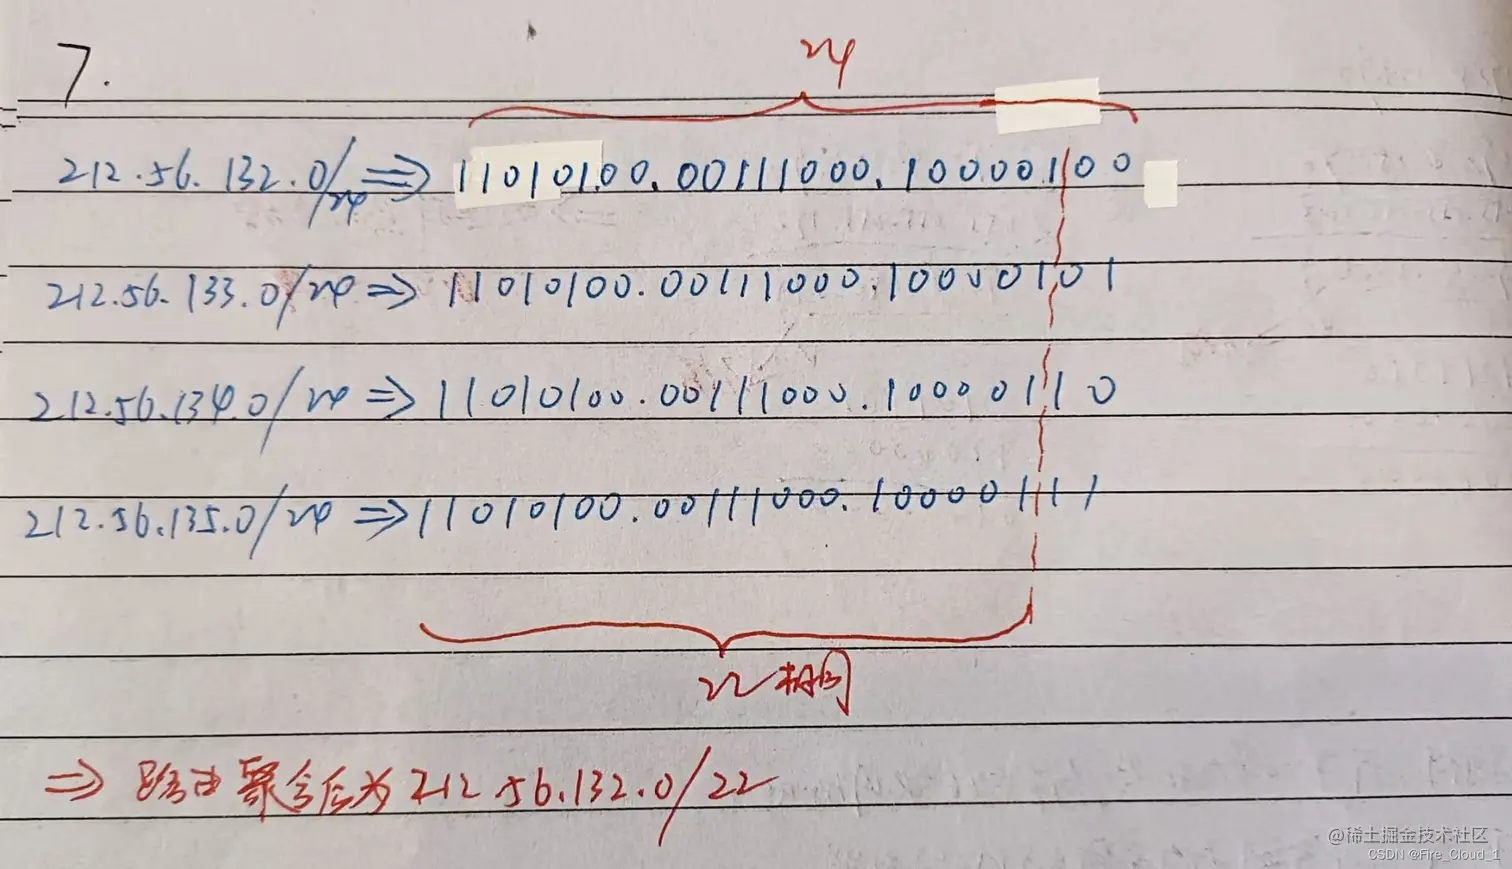 7.
24
212.56.132.0/24 ⇒ 11010100.00111000.10000100
212.56.133.0/24 ⇒ 11010100.00111000.10000101
212.56.134.0/24 ⇒ 11010100.00111000.10000110
212.56.135.0/24 ⇒ 11010100.00111000.10000111
22相同
⇒ 路由聚合后为212.56.132.0/22
@稀土掘金技术社区
CSDN @Fire_Cloud_1